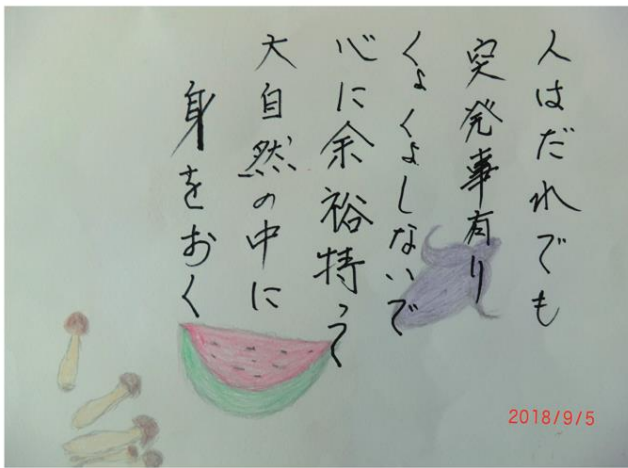 人はだれでも
突発事有り
くよくよしないで
心に余裕持って
大自然の中に
身をおく
2018/9/5